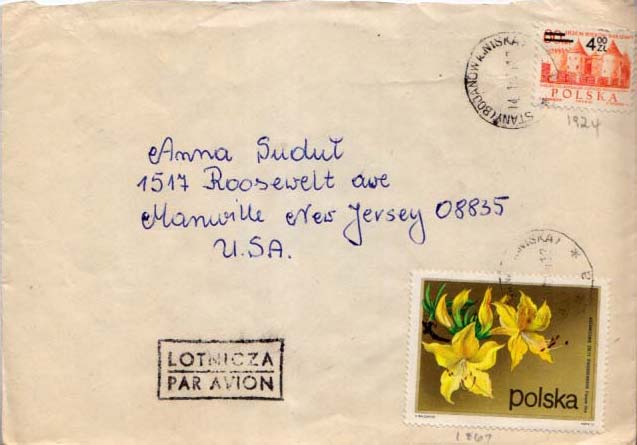 STANY (BOJANÓW K.NISKA)
4.00 ZŁ
POLSKA
1924
Anna Suduł
1517 Roosewelt ave
Manville New Jersey 08835
U.S.A.
LOTNICZA
PAR AVION
polska
1867